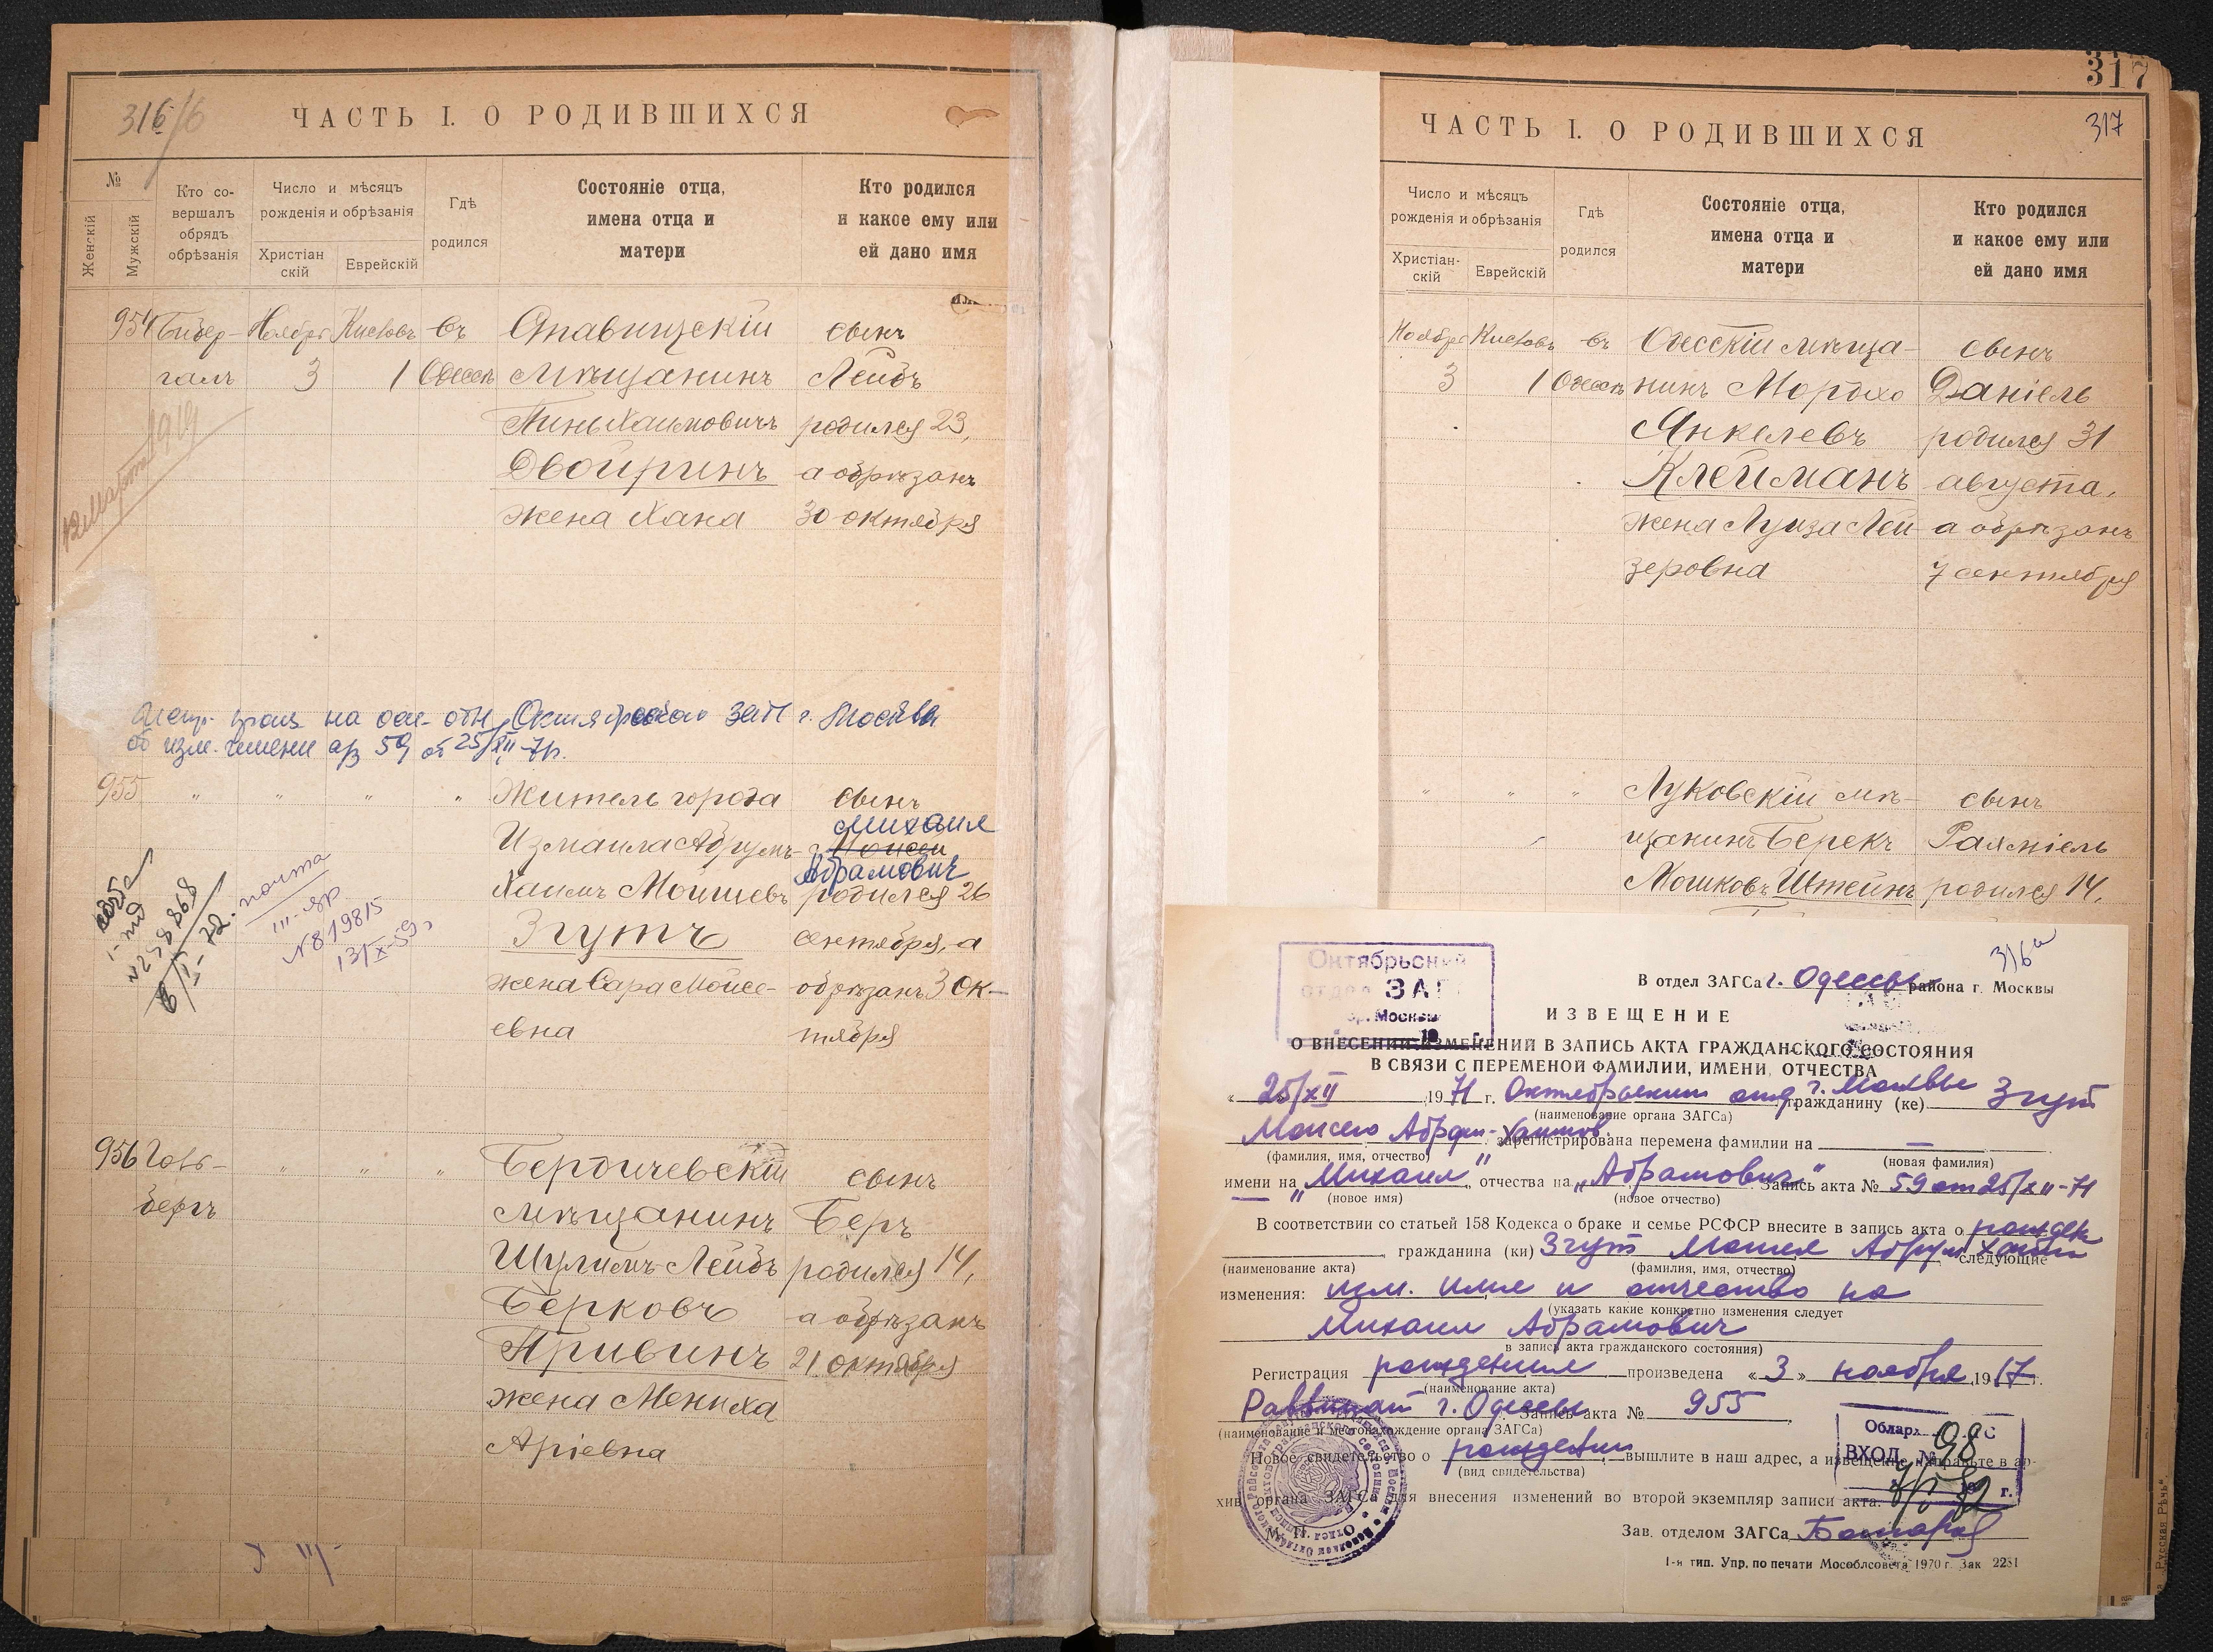 316
ЧАСТЬ I. О РОДИВШИХСЯ
№
Женскій
Мужскій
Кто со-
вершалъ
обрядъ
обрѣзанія
Число и мѣсяцъ
рожденія и обрѣзанія
Христіан
скій
Еврейскій
Гдѣ
родился
Состояніе отца,
имена отца и
матери
Кто родился
и какое ему или
ей дано имя
954 Бидер- Ноября Кислевъ въ мѣщанинъ сынъ
галъ 3 1 Одессѣ Лейбъ
Хаимовичъ родился 23,
Двойринъ а обрѣзанъ
жена Хана 30 октября
12 марта 1919
на Октябрьского ЗАГС г. Москва
об изм. а/з 59 от 25/XII-71г.
955 " " " " Житель города сынъ
Михаил
Измаила Абрумъ- Моисей
Абрамович
Хаимъ Мойшевъ родился 26
Згутъ сентября, а
жена Сара Мойсе- обрѣзанъ 3 ок-
евна тября
почта
№819815
13/X-59
956 Голь- " " " Бердичевскій сынъ
бергъ мѣщанинъ Беръ
Шулимъ-Лейбъ родился 14,
Берковъ а обрѣзанъ
Привинъ 21 октября
жена Мениха
Аріевна
317
317
ЧАСТЬ I. О РОДИВШИХСЯ
Число и мѣсяцъ
рожденія и обрѣзанія
Христіан-
скій
Еврейскій
Гдѣ
родился
Состояніе отца,
имена отца и
матери
Кто родился
и какое ему или
ей дано имя
Ноября Кислевъ въ Одесскій мѣща- сынъ
3 1 Одессѣ нинъ Мордхо Даніель
Янкелевъ родился 31
Клейманъ августа,
жена Луиза Лей- а обрѣзанъ
зеровна 7 сентября
" " " Луковскій мѣ- сынъ
щанинъ Берекъ
Мошковъ Штейнъ родился 14,
Октябрьский
отдел ЗАГС
гор. Москвы
316а
В отдел ЗАГСа г. Одессы района г. Москвы
ИЗВЕЩЕНИЕ
О ВНЕСЕНИИ ИЗМЕНЕНИЙ В ЗАПИСЬ АКТА ГРАЖДАНСКОГО СОСТОЯНИЯ
В СВЯЗИ С ПЕРЕМЕНОЙ ФАМИЛИИ, ИМЕНИ, ОТЧЕСТВА
« 25/XII 1971 г. Октябрьским отд. г. Москвы гражданину (ке) Згут
(наименование органа ЗАГСа)
Моисею Абрам-Хаимов. зарегистрирована перемена фамилии на —
(фамилия, имя, отчество)
(новая фамилия)
имени на „Михаил" отчества на „Абрамович" Запись акта № 59 от 25/XII-71
(новое имя)
(новое отчество)
В соответствии со статьей 158 Кодекса о браке и семье РСФСР внесите в запись акта о рожден
гражданина (ки) Згут Моисея Абрум Хаимов следующие
(наименование акта)
(фамилия, имя, отчество)
изменения: изм. имя и отчество на
(указать какие конкретно изменения следует
Михаил Абрамович
в запись акта гражданского состояния)
Регистрация рождения произведена « 3 » ноября 1917 г.
(наименование акта)
Раввинат г. Одессы Запись акта № 955
(наименование и местонахождение органа ЗАГСа)
Новое свидетельство о рождении вышлите в наш адрес, а извещение направьте в ар-
(вид свидетельства)
хив органа ЗАГСа для внесения изменений во второй экземпляр записи акта.
ВХОД. № 98
г.
М. П.
Зав. отделом ЗАГСа
1-я тип. Упр. по печати Мособлсовета 1970 г. Зак 2231
„Русская Рѣчь"